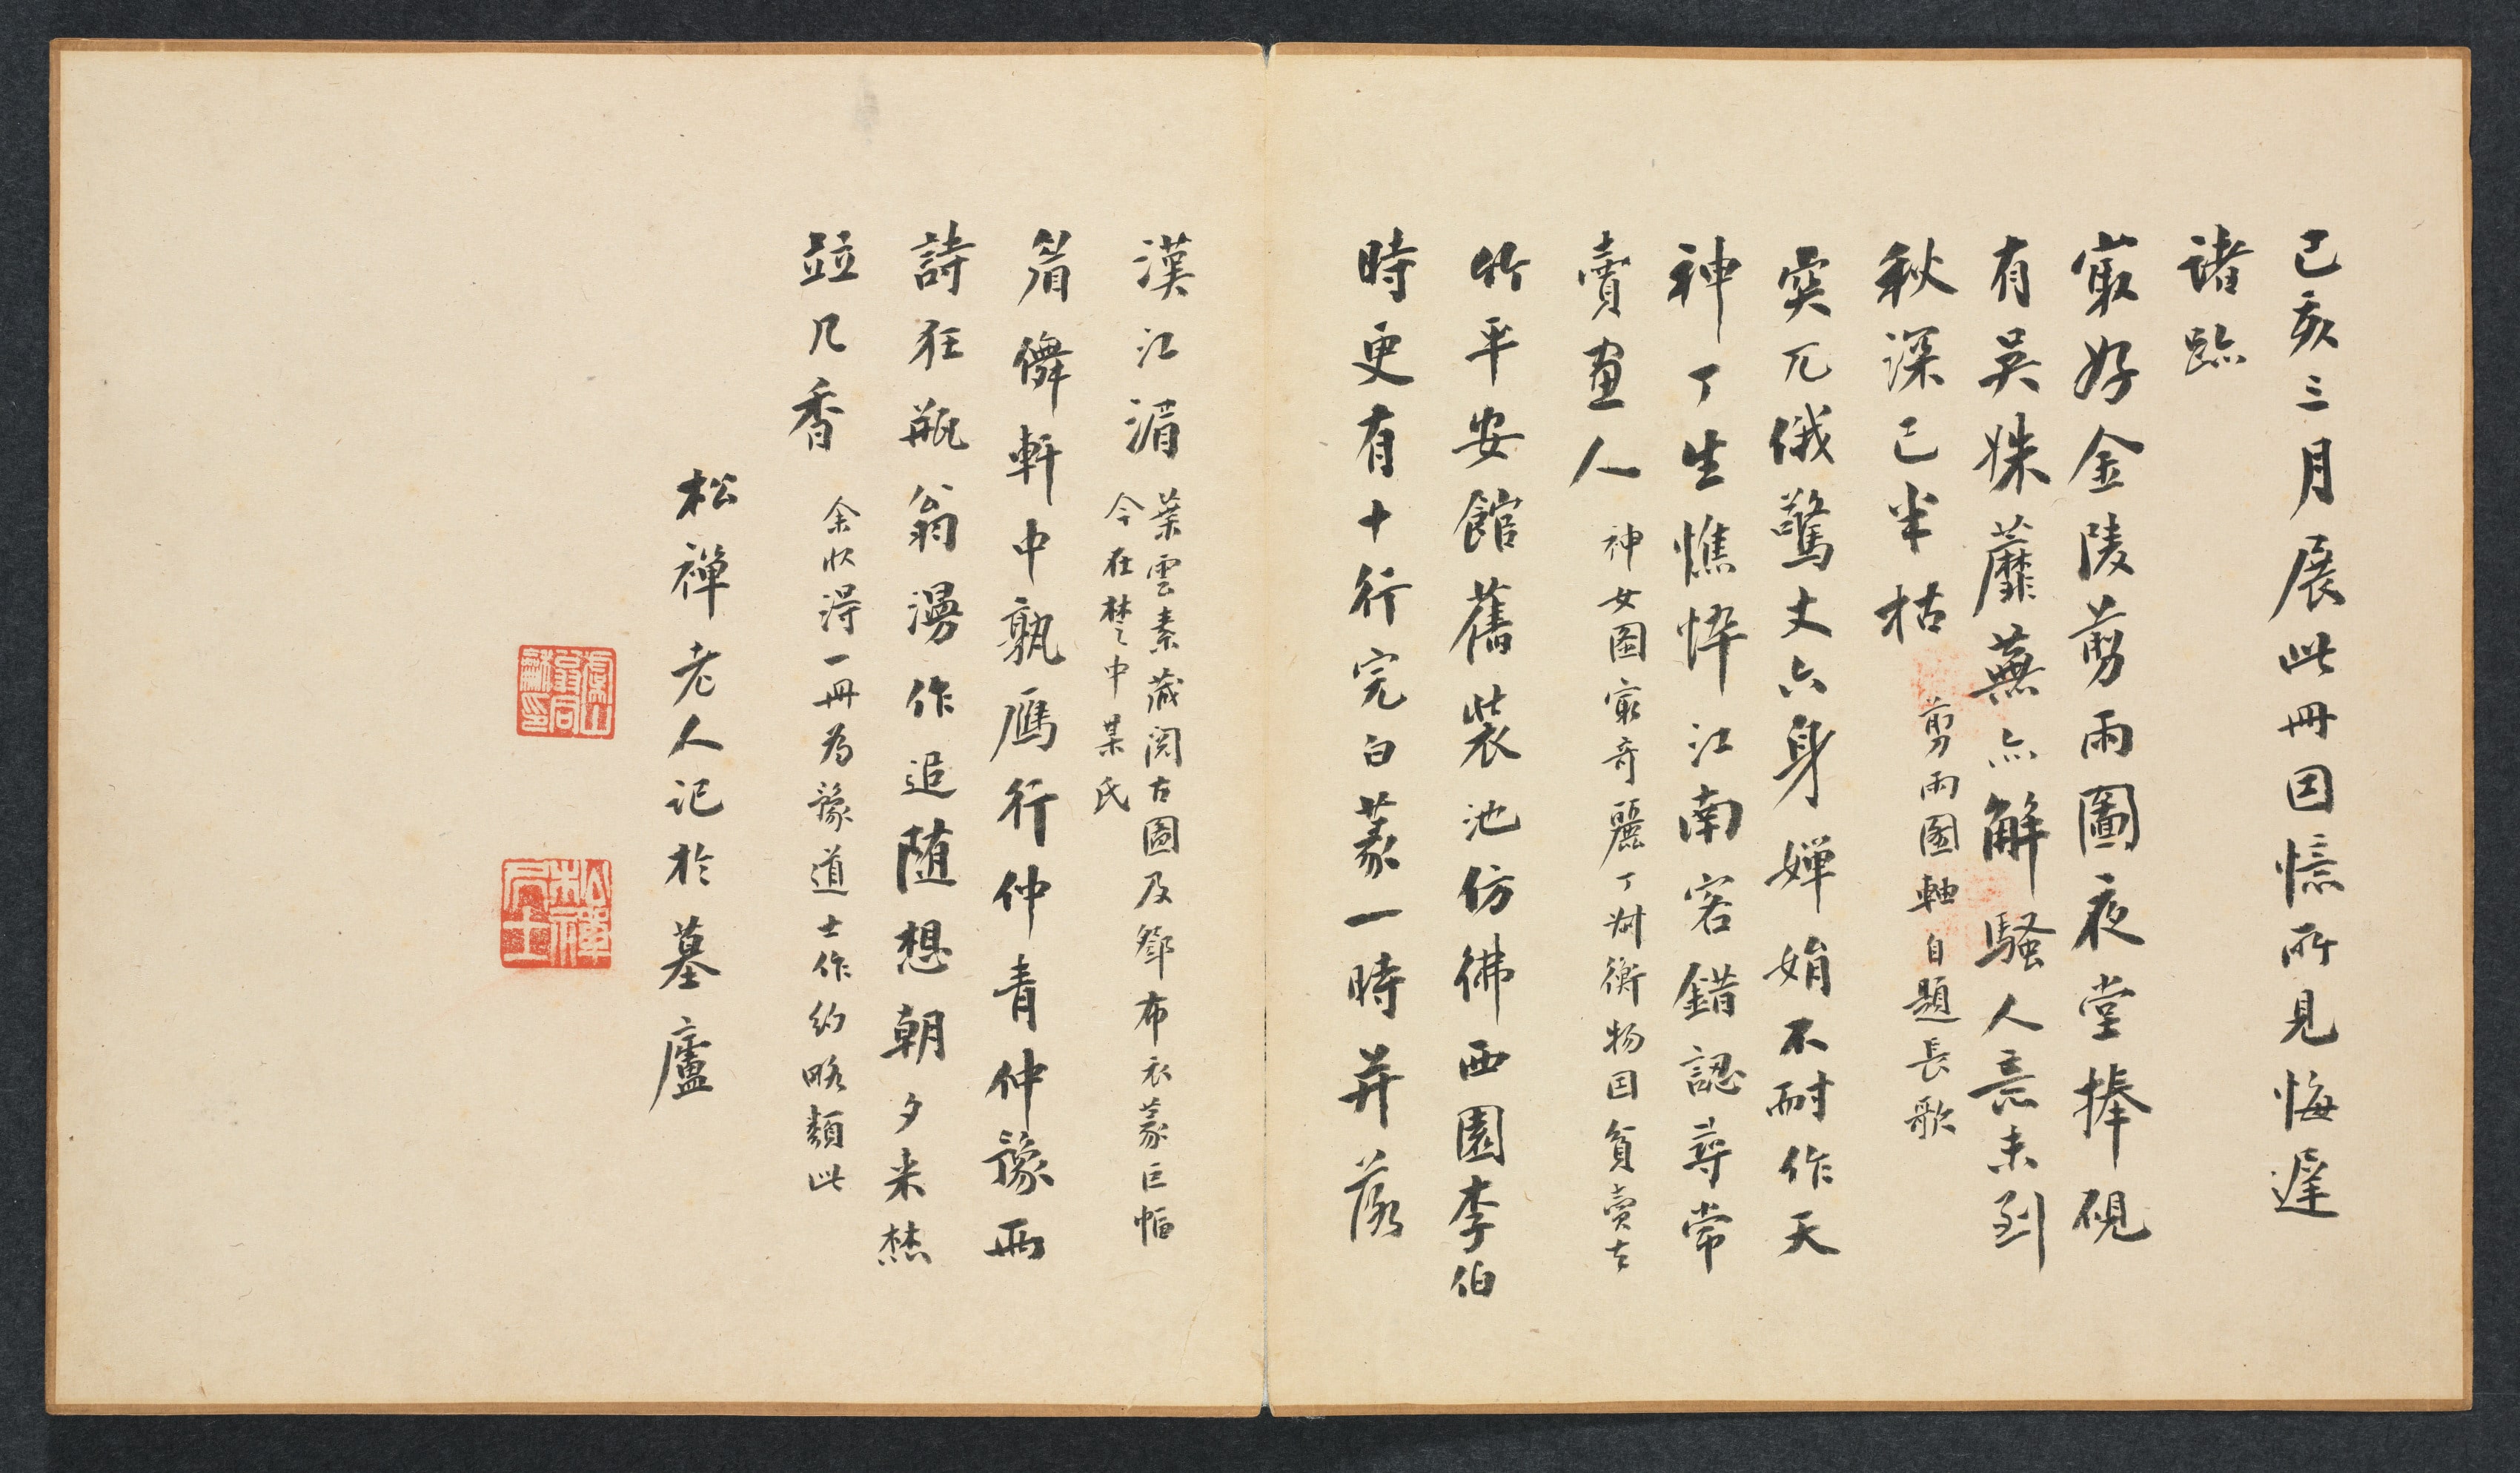 己亥三月展此冊因憶所見悔遲
諸跡
冣好金陵剪雨圖夜堂捧硯
有吳姝蘼蕪亦解騷人意未到
秋深已半枯
剪雨圖軸自題長歌
突兀俄驚丈六身嬋娟不耐作天
神丁生憔悴江南客錯認尋常
賣畫人
神女圖冣奇麗丁尗衡物因貧賣去
竹平安館舊裝池仿彿西園李伯
時更有十行完白篆一時并落
漢江湄
葉雲素藏閱古圖及鄧布衣篆巨幅
今在楚中某氏
眉僲軒中孰鴈行仲青仲豫兩
詩狂瓶翁漫作追随想朝夕来㷊
竝几香
余昳淂一冊為豫道士作約略類此
松禪老人記於墓廬
虞山翁同龢印
松禪居士